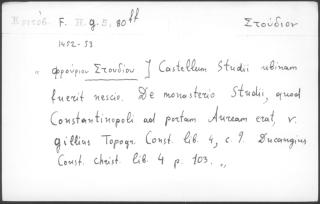 Κριτόβ. F. H. g. 5, 80 ff Στούδιον
1452-53
„ φρούριον Στουδίου ] Castellum Studii ubinam
fuerit nescio. De monasterio Studii, quod
Constantinopoli ad portam Auream erat, v.
gillius Topogr. Const. lib. 4, c. 9. Ducangius
Const. christ. lib. 4 p. 103. „